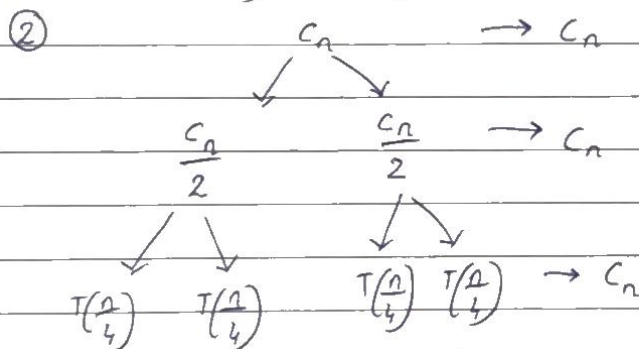 ② Cn → Cn
Cn/2 Cn/2 → Cn
T(n/4) T(n/4) T(n/4) T(n/4) → Cn